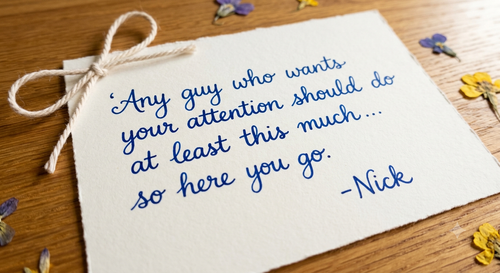 'Any guy who wants
your attention should do
at least this much...
so here you go.
-Nick